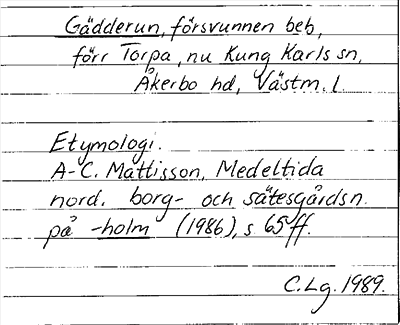 Gädderun, försvunnen beb,
förr Torpa, nu Kung Karls sn,
Åkerbo hd, Västm. l.
Etymologi.
A-C. Mattisson, Medeltida
nord. borg- och sätesgårdsn.
på -holm (1986), s. 65 ff.
C.Lg. 1989.